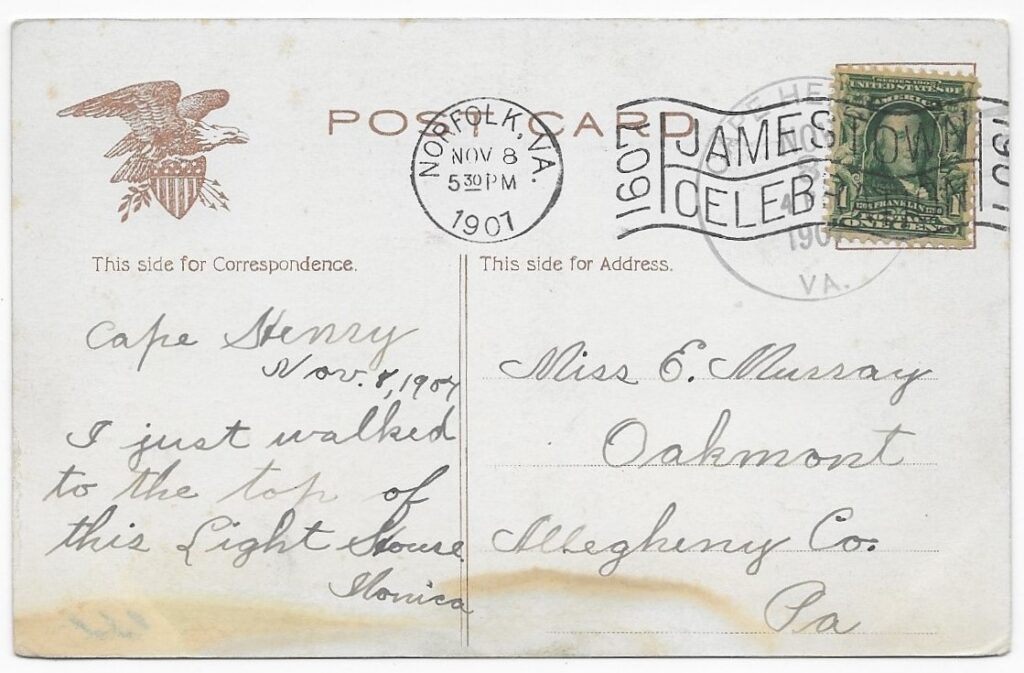 POST CARD
NORFOLK, VA.
NOV 8
5 30 PM
1907
1907
JAMESTOWN
CELEB
1907
CAPE HE
NOV
8
190
VA.
SERIES 1902
UNITED STATES OF
AMERICA
FRANKLIN
1 1
ONE CENT
This side for Correspondence.
This side for Address.
Cape Henry
Nov. 8, 1907
I just walked
to the top of
this Light House
Monica
Miss E. Murray
Oakmont
Allegheny Co.
Pa